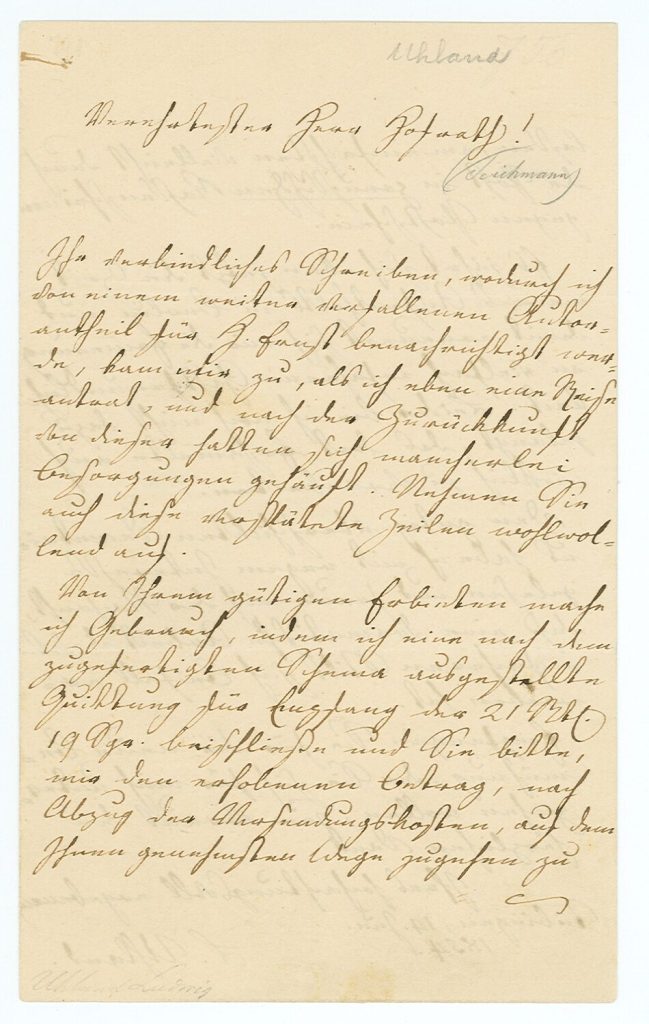 Uhland
Verehrtester Herr Hofrath!
(Teichmann)
Ihr verbindliches Schreiben, wodurch ich
von einem weiter verfallenen Autor-
antheil für H. Ernst benachrichtigt wer-
de, kam mir zu, als ich eben eine Reise
antrat, und nach der Zurückkunft
von dieser hatten sich mancherlei
Besorgungen gehäuft. Nehmen Sie
auch diese verspätete Zeilen wohlwol-
lend auf.
Von Ihrem gütigen Erbieten mache
ich Gebrauch, indem ich eine nach dem
zugefertigten Schema ausgestellte
Quittung für Empfang der 21 Rtl.
19 Sgr. beischließe und Sie bitte,
mir den erhobenen Betrag, nach
Abzug der Versendungskosten, auf dem
Ihnen genehmsten Wege zugehen zu
Uhland Ludwig